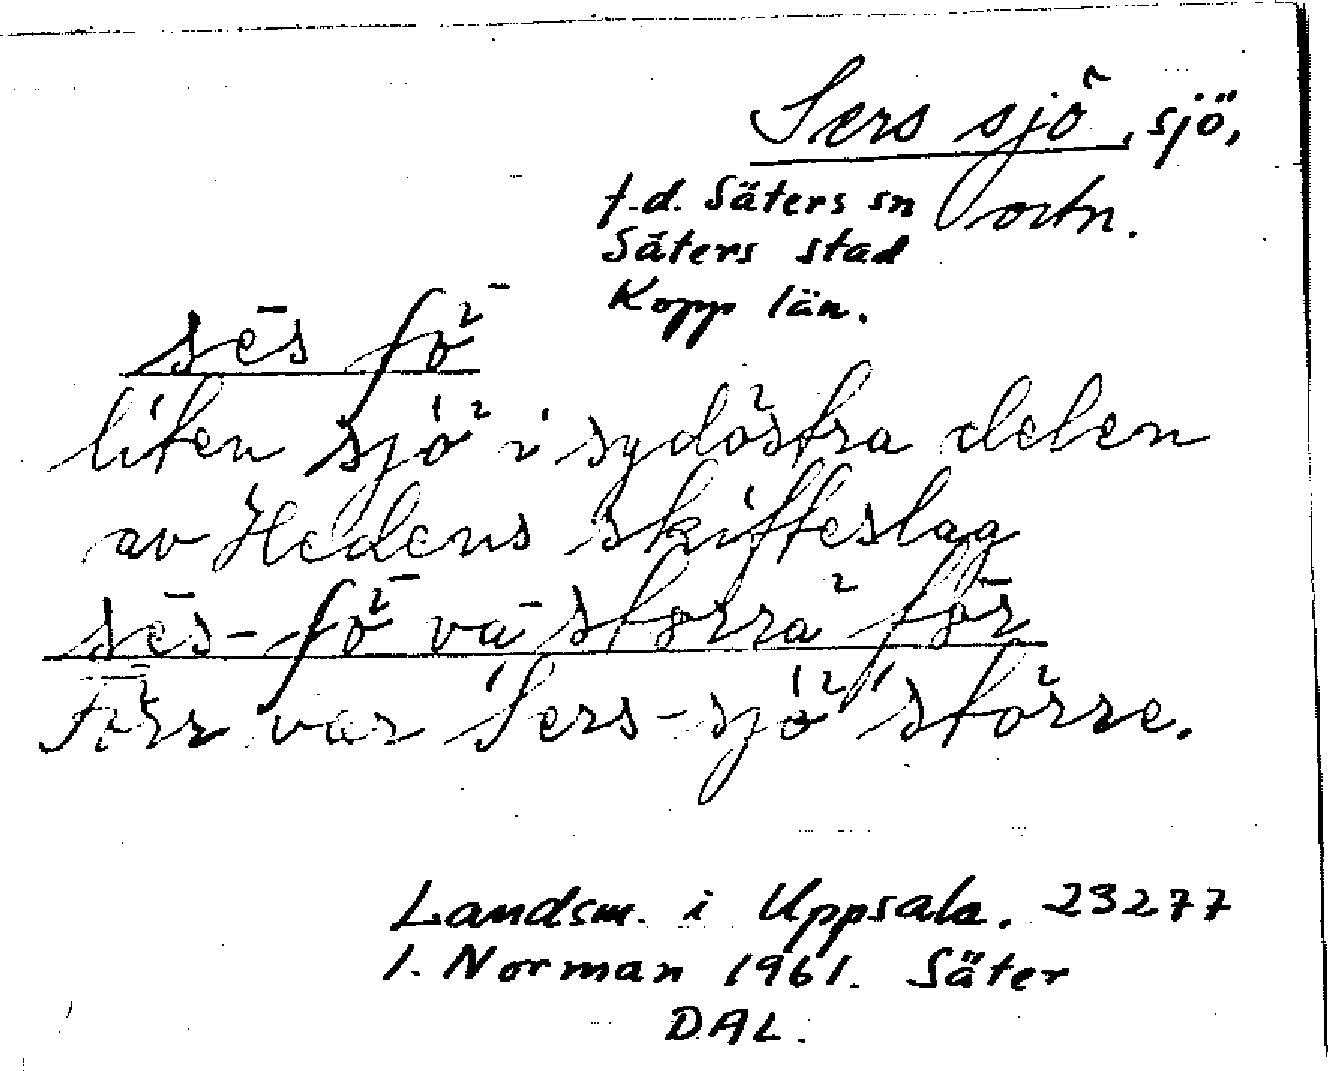 Sers sjö, sjö,
f.d. Säters sn ortn.
Säters stad
Kopp län.
sēs ʃȫ
liten sjö i sydöstra delen
av Hedens skifteslag
sēs-ʃȫ vā störrä för
Förr var "Sers-sjö" större.
Landsm. i Uppsala. 23277
I. Norman 1961. Säter
DAL.